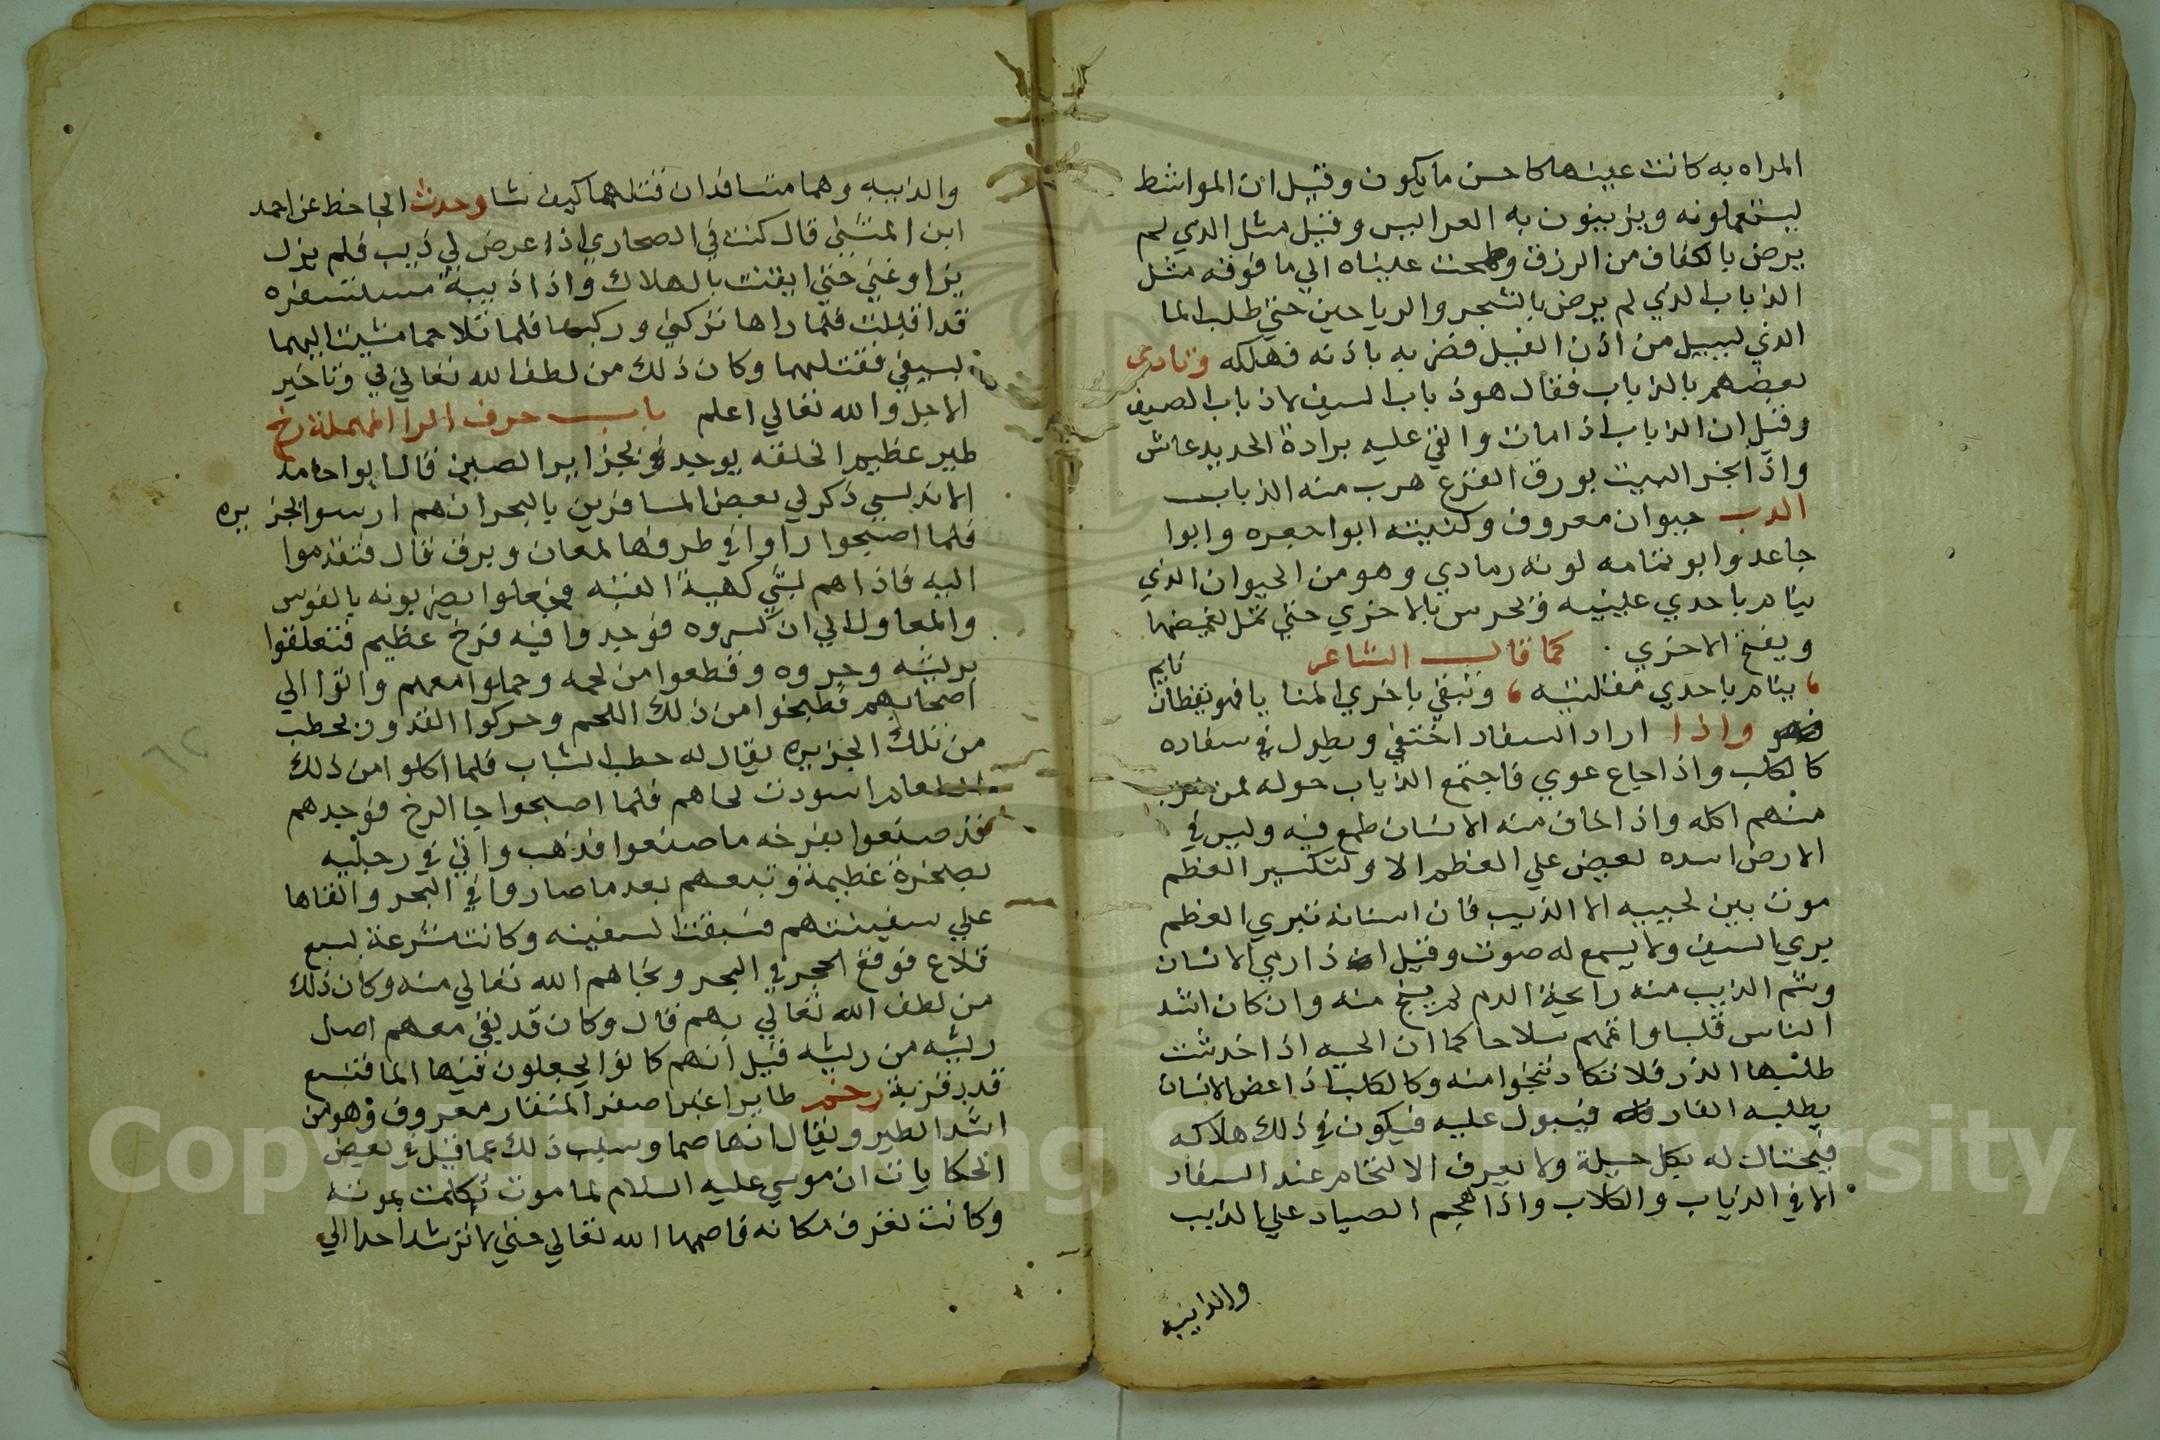 المراه به كانت عينها كاحسن ما يكون وقيل ان المواشط
ليستعملونه ويزينون به العرايس وقيل مثل الذي لم
يرض بالكفاف من الرزق وطمحت عيناه الي ما فوقه مثل
الذباب الذي لم يرض بالشجر والرياحين حتي طلب الما
الذي ليسيل من اذن الفيل فضربه باذنه فهلكه ونادي
بعضهم بالذباب فقال هو ذباب السيف لا ذباب الصيف
وقيل ان الذباب اذا مات والقي عليه برادة الحديد عاش
واذا بخر البيت بورق القرع هرب منه الذباب
الدب حيوان معروف وكنيته ابوا جعره وابوا
جاعد وابو ثمامه لونه رمادي وهو من الحيوان الذي
ينام باحدي عينيه ويحرس بالاخري حتي تمل فيغمضها
ويفتح الاخري كما قال الشاعر
ينام باحدي مقلتيه وتبقي باخري المنايا فهو يقظان نايم
واذا اراد السفاد اختفي ويطول في سفاده
كالكلب واذا جاع عوي فاجتمع الذياب حوله فمن هرب
منهم اكله واذا خاف منه الانسان طمع فيه وليس في
الارض اسده بعض علي العظم الا ولتكسير العظم
صوت بين لحييه الا الذيب فان اسنانه تبري العظم
بري السيف ولا يسمع له صوت وقيل اذا رمي الانسان
وشم الذيب منه رايحة الدم لم ينج منه وان كان اشد
الناس قلبا واتمهم سلاحا كما ان الحيه اذا خدشت
طلبها الذر فلا تكاد تنجوا منه وكالكلب اذا عض الانسان
يطلبه الفار فيبول عليه فيكون في ذلك هلاكه
فيحتال له بكل حيلة ولا يعرف الالتحام عند السفاد
الا في الذياب والكلاب واذا هجم الصياد علي الذيب
والذيبه
والذيبه وهما متسافدان قتلهما كيف شا وحدث الجاحظ عن احمد
ابن المثني قال كنت في الصحاري اذ اعرض لي ذيب فلم يزل
يراوغني حتي ايقنت بالهلاك واذا ذيبة مستسفره
قد اقبلت فلما راها تركني وركبها فلما تلاحما مشيت اليهما
بسيفي فقتلهما وكان ذلك من لطف الله تعالي لي وتاخير
الاجل والله تعالي اعلم باب حرف الرا المهملة رخ
طير عظيم الخلقه يوجد بجزاير الصين قال ابوا حامد
الاندلسي ذكر لي بعض المسافرين بالبحر انهم ارسوا بجزيره
فلما اصبحوا راوا في طرفها لمعان وبرق قال فتقدموا
اليه فاذا هم بشي كهية القبه فجعلوا يضربونه بالفوس
والمعاول الي ان كسروه فوجدوا فيه فرخ عظيم فتعلقوا
بريشه وجروه وقطعوا من لحمه وحملوا معهم واتوا الي
اصحابهم فطبخوا من ذلك اللحم وحركوا القدور بحطب
من تلك الجزيره يقال له حطب الشباب فلما اكلوا من ذلك
الطعام اسودت لحاهم فلما اصبحوا جا الرخ فوجدهم
قد صنعوا بفرخه ما صنعوا فذهب واتي في رجليه
بصخرة عظيمة وتبعهم بعد ما صاروا في البحر والقاها
علي سفينتهم فسبقت السفينه وكانت مشرعة بسبع
قلاع فوقع الحجر في البحر ونجاهم الله تعالي منه وكان ذلك
من لطف الله تعالي بهم قال وكان قد بقي معهم اصل
ريشه من ريشه قيل انهم كانوا يجعلون فيها الما فتسع
قدر قربة رخم طاير اغبر اصفر المنقار معروف وهو من
اشد الطير ويقال انها صما وسبب ذلك عما قيل في بعض
الحكايات ان موسي عليه السلام لما موت تكلمت بموته
وكانت تعرف مكانه فاصمها الله تعالي حتي لا ترشد احدا الي
Copyright © King Saud University